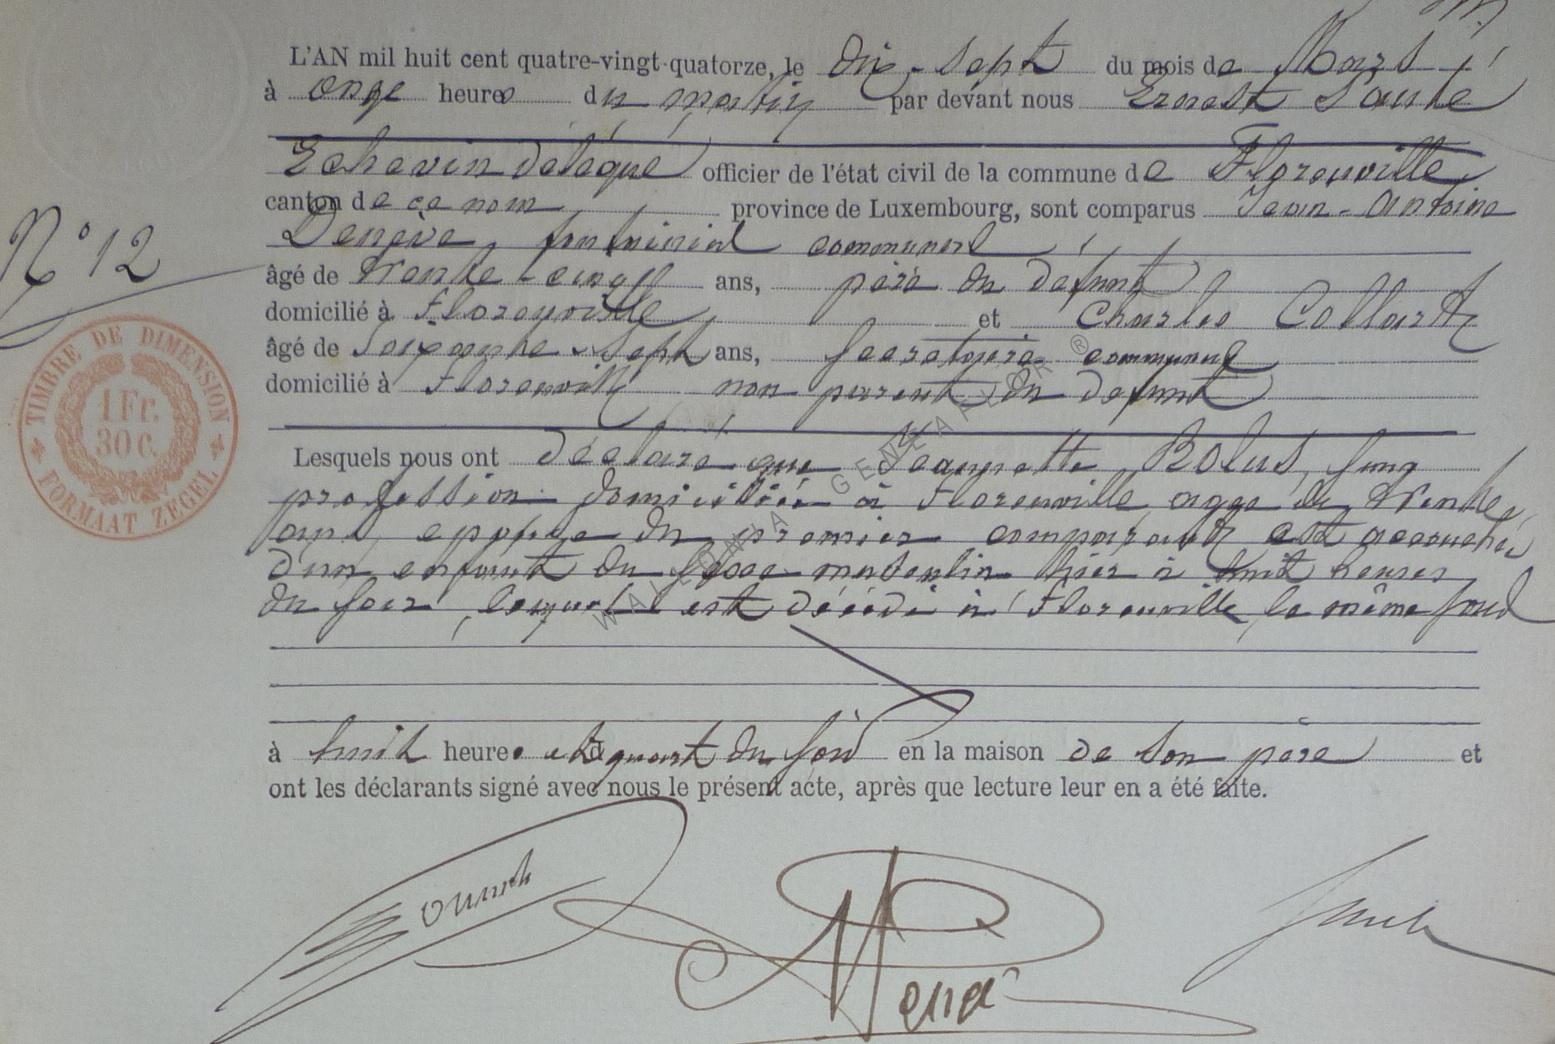 L'AN mil huit cent quatre-vingt-quatorze, le dix-sept du mois de Mars
à onze heures du matin par devant nous Ernest
Echevin délégué officier de l'état civil de la commune de Florenville
canton de ce nom province de Luxembourg, sont comparus Jean-Antoine
Denève, communal
âgé de trente cinq ans, père du défunt
domicilié à Florenville et Charles Collart
âgé de Soixante-Sept ans, Secrétaire communal
domicilié à Florenville non parent du défunt
Lesquels nous ont déclaré que Jeannette Bolus, sans
profession domiciliée à Florenville agée de trente
ans, epouse du premier comparant est accouchée
d'un enfant du sexe masculin hier à huit heures
du soir, lequel est décédé à Florenville, le même jour
à huit heures et quart du soir en la maison de son père et
ont les déclarants signé avec nous le présent acte, après que lecture leur en a été faite.
N° 12
TIMBRE DE DIMENSION
1 Fr.
30 C.
FORMAAT ZEGEL
WALLONIA GENEALOR ®